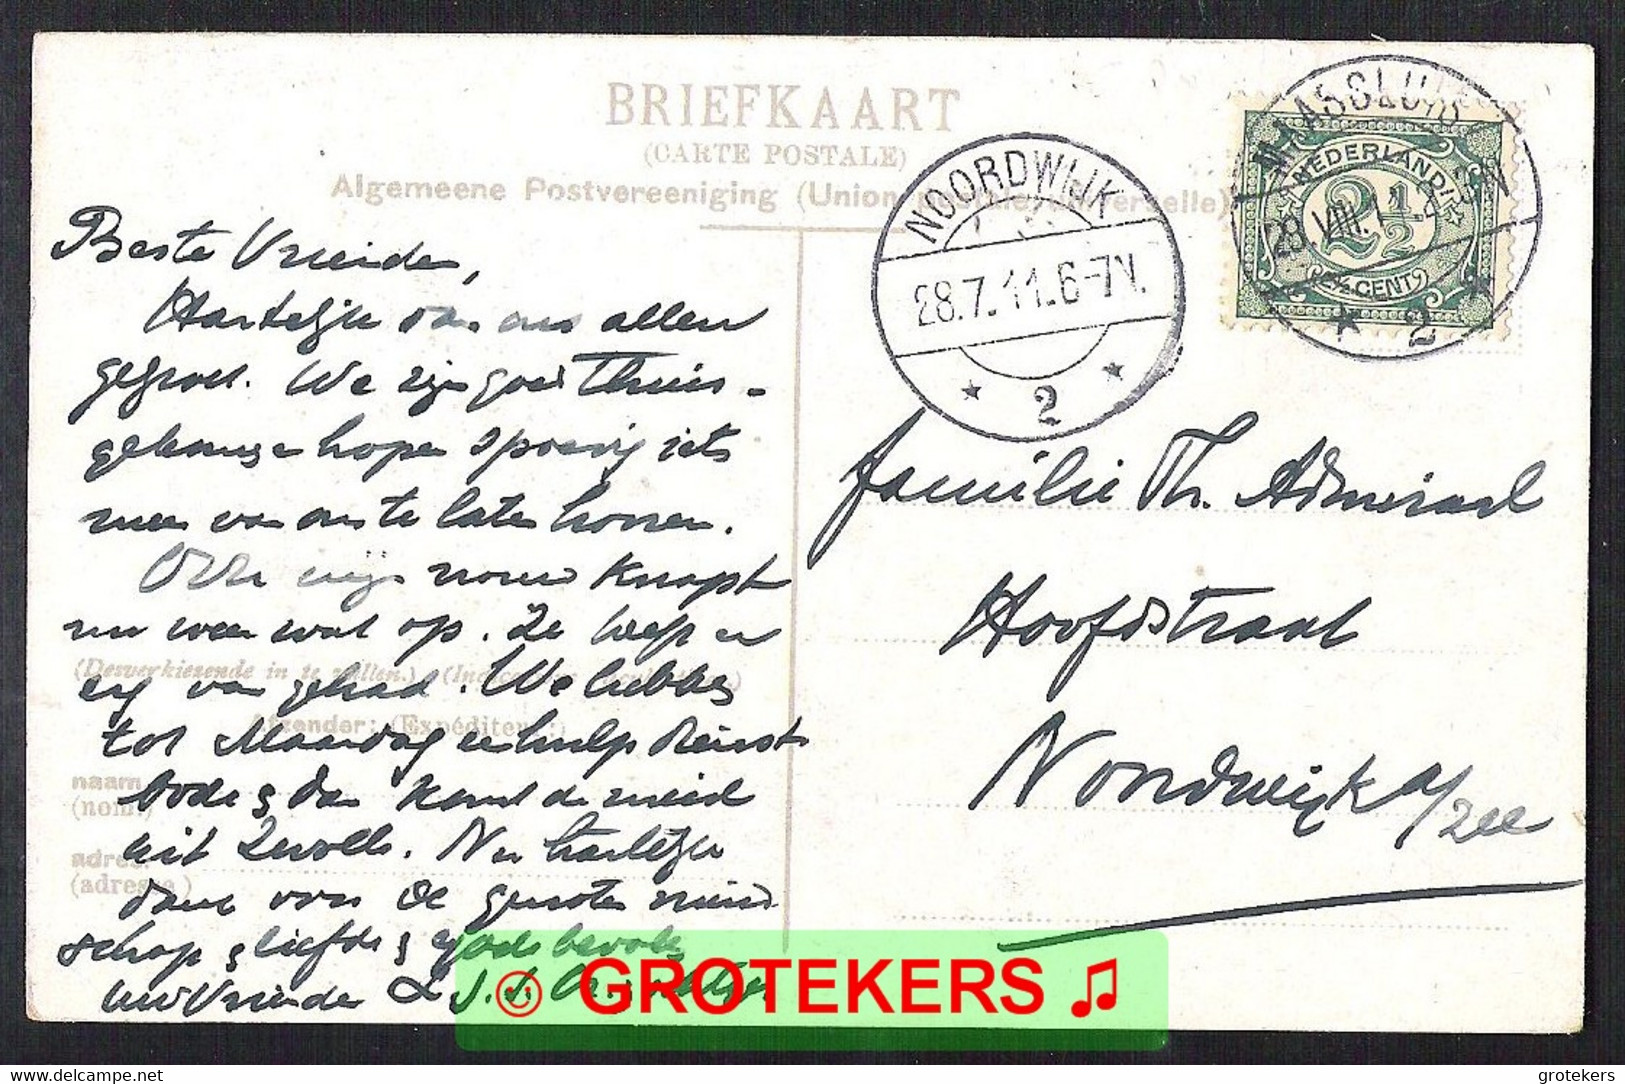 BRIEFKAART
(CARTE POSTALE)
Algemeene Postvereeniging (Union postale universelle)
NOORDWIJK
28.7.11.6-7N.
2
MAASSLUIS
28.VIII.1
5-
2
NEDERLAND
2½
2½ CENT
Beste Vrienden,
Hartelijk van ons allen
gegroet. We zijn goed Thuis-
gekomen hopen spoedig iets
meer van ons te laten hooren.
mijn vrouw knapt
nu weer wat op. Ze heeft er
erg van gehad. We hebben
tot Maandag een hulp dienst-
bode & dan komt de meid
uit Zwolle. Nu hartelijk
dank voor de genoten vriend
schap & liefde & Gode bevolen
uw Vrienden
(Desverkiezende in te vullen.) (Indication facultative.)
Afzender: (Expéditeur:)
naam
(nom:)
adres
(adresse)
familie Th. Admiraal
Hoofdstraat
Noordwijk a/zee
GROTEKERS
delcampe.net
grotekers